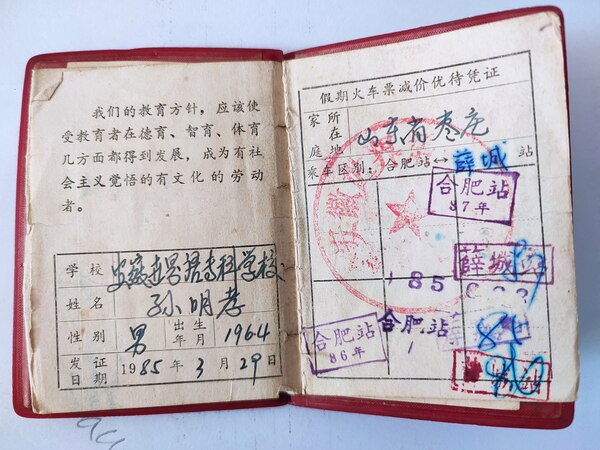 我们的教育方针，应该使
受教育者在德育、智育、体育
几方面都得到发展，成为有社
会主义觉悟的有文化的劳动
者。
学校
姓名 孙明孝
性别 男 出生年月 1964
发证日期 1985年3月29日
假期火车票减价优待凭证
家庭所在地 山东省枣庄
乘车区别：合肥站↔薛城站
合肥站
87年
薛城站
185
合肥站
合肥站
86年